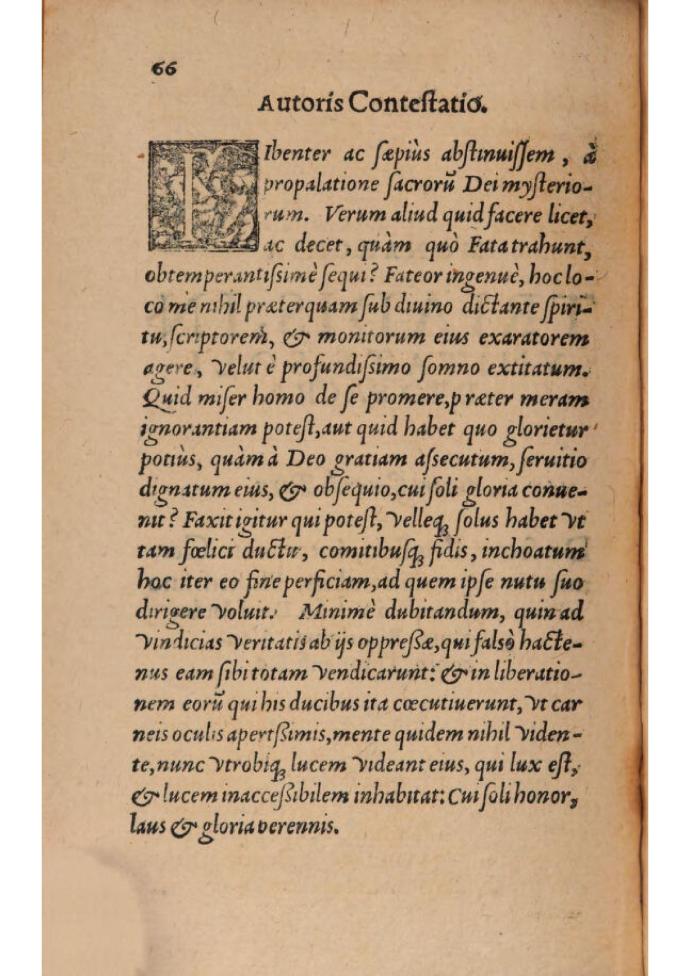 66
Autoris Contestatio.
LIbenter ac sæpiùs abstinuissem, à
propalatione sacrorū Dei mysterio-
rum. Verum aliud quid facere licet,
ac decet, quàm quò Fata trahunt,
obtemperantissimè sequi? Fateor ingenuè, hoc lo-
co me nihil præterquam sub diuino dictante spiri-
tu, scriptorem, & monitorum eius exaratorem
agere, velut è profundissimo somno extitatum.
Quid miser homo de se promere, præter meram
ignorantiam potest, aut quid habet quo glorietur
potiùs, quàm à Deo gratiam assecutum, seruitio
dignatum eius, & obsequio, cui soli gloria conue-
nit? Faxit igitur qui potest, velleq; solus habet vt
tam fœlici ductu, comitibusq; fidis, inchoatum
hoc iter eo fine perficiam, ad quem ipse nutu suo
dirigere voluit. Minimè dubitandum, quin ad
vindicias veritatis ab ijs oppressæ, qui falsò hacte-
nus eam sibi totam vendicarunt: & in liberatio-
nem eorū qui his ducibus ita cœcutiuerunt, vt car
neis oculis apertssimis, mente quidem nihil viden-
te, nunc vtrobiq; lucem videant eius, qui lux est,
& lucem inaccessibilem inhabitat: Cui soli honor,
laus & gloria perennis.